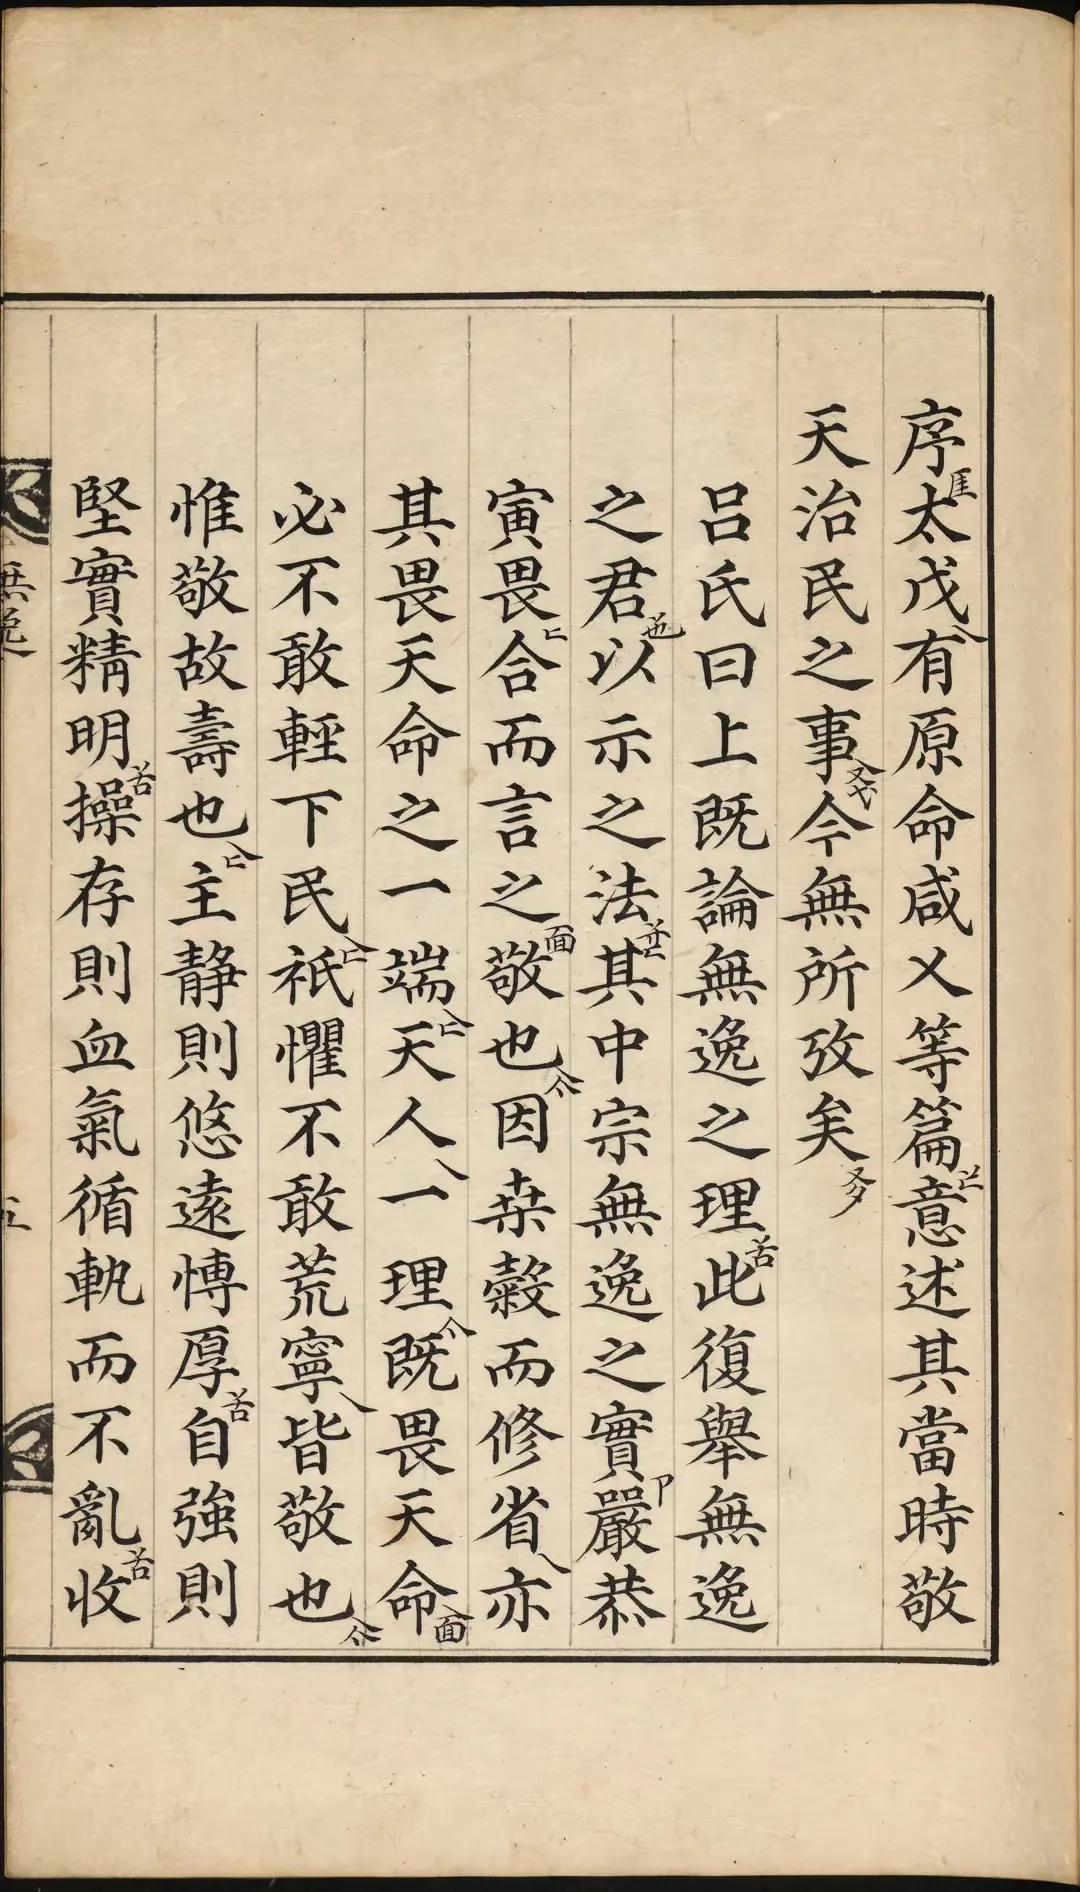 序太戊有原命咸乂等篇意述其當時敬
天治民之事今無所攷矣
呂氏曰上既論無逸之理此復舉無逸
之君以示之法其中宗無逸之實嚴恭
寅畏合而言之敬也因桒穀而修省亦
其畏天命之一端天人一理既畏天命
必不敢輕下民祇懼不敢荒寧皆敬也
惟敬故壽也主靜則悠遠博厚自強則
堅實精明操存則血氣循軌而不亂收
無逸